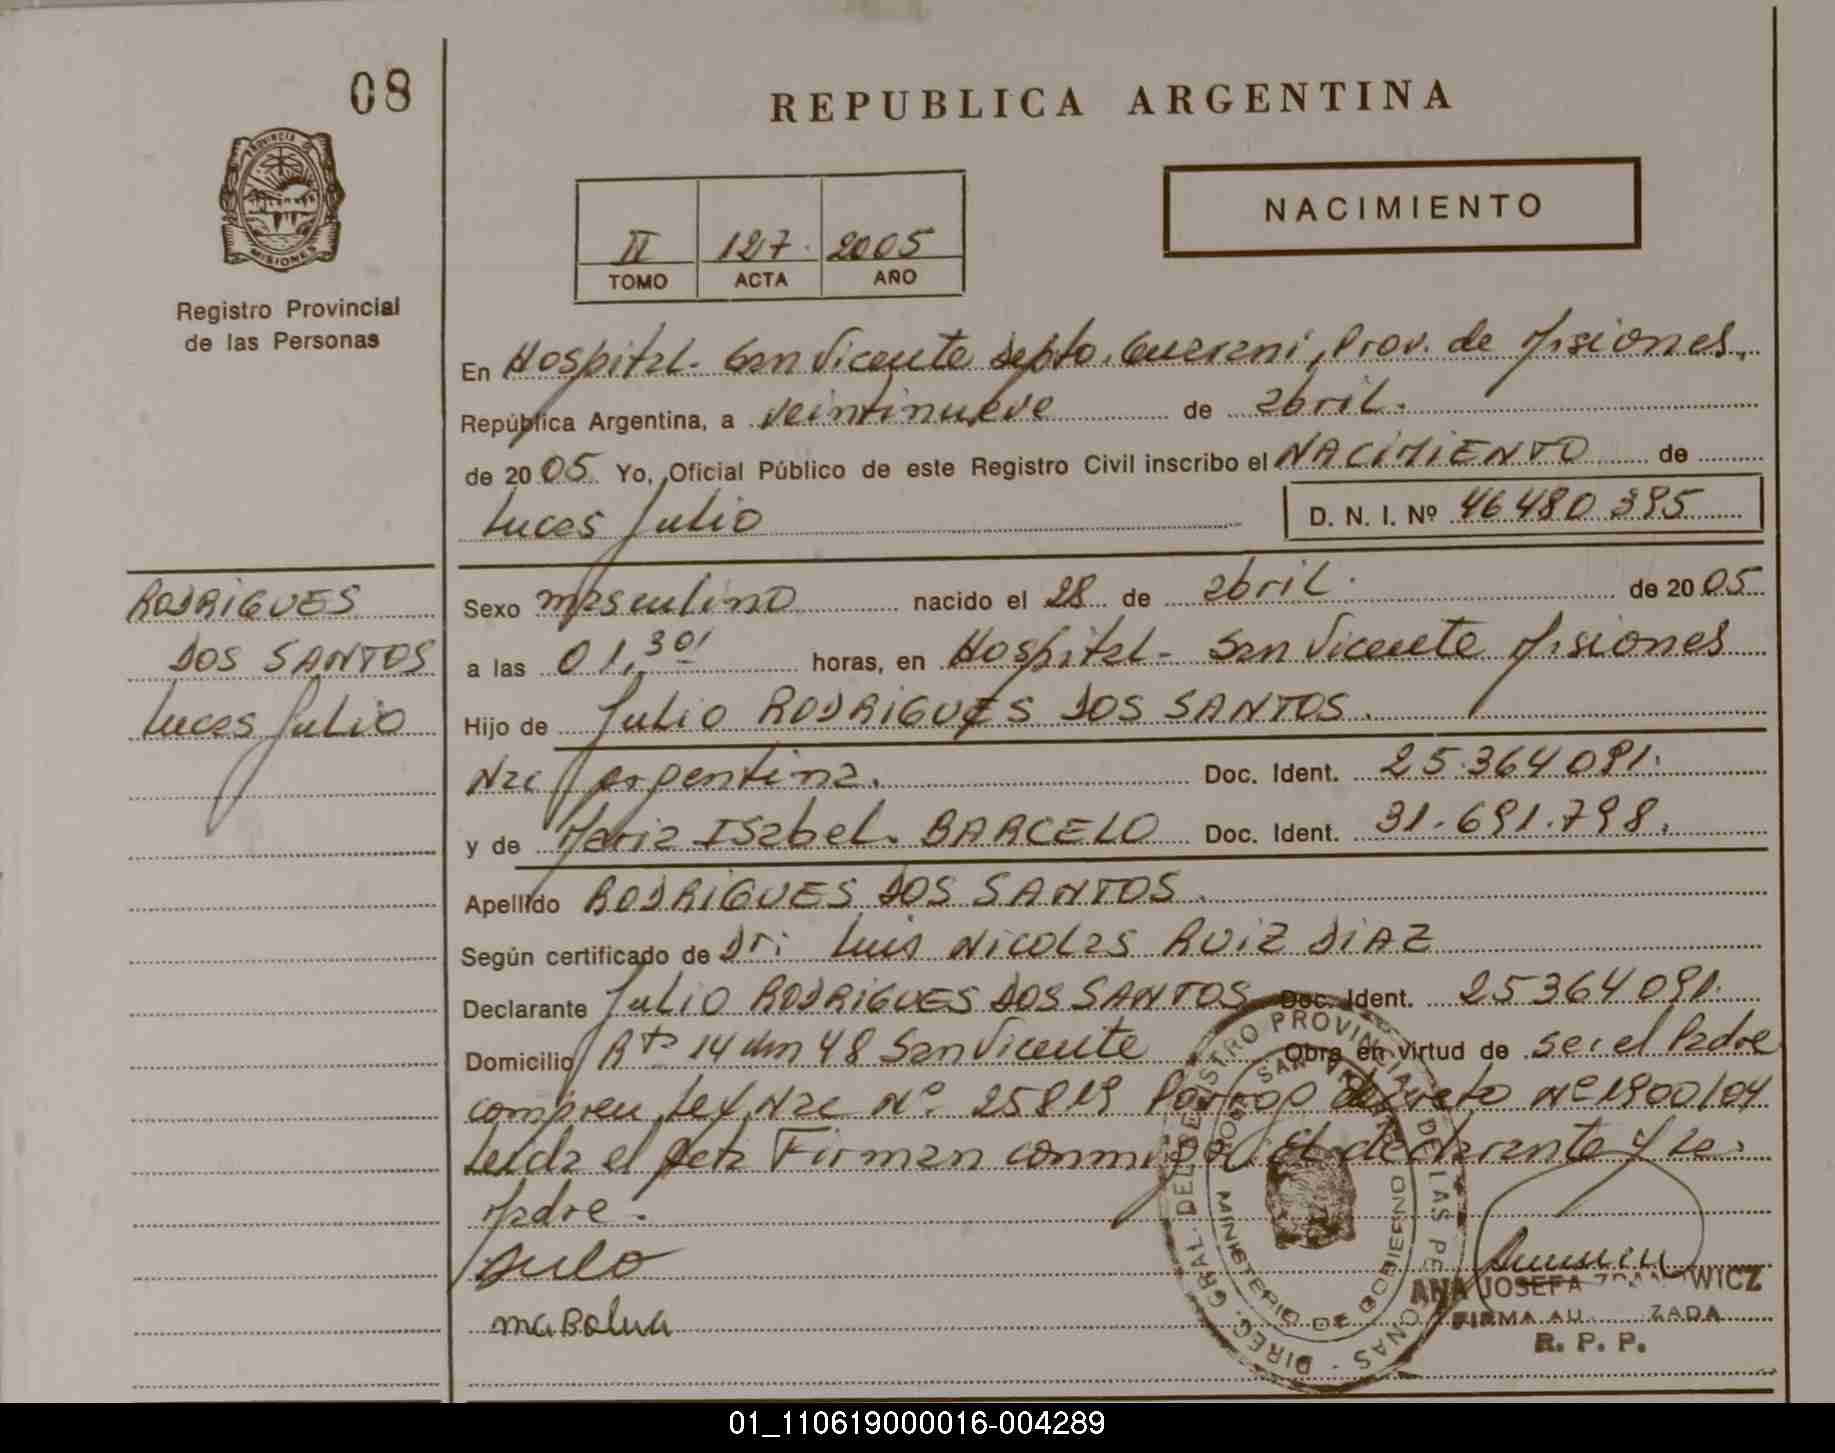 08
REPUBLICA ARGENTINA
PROVINCIA D
MISIONES
Registro Provincial
de las Personas
NACIMIENTO
II 127. 2005
TOMO ACTA AÑO
En Hospital. San Vicente Depto. Guarani, Prov. de Misiones.
República Argentina, a veintinueve de abril.
de 2005. Yo, Oficial Público de este Registro Civil inscribo el NACIMIENTO de
Lucas Julio
D. N. I. Nº 46480395
RODRIGUES
DOS SANTOS
Lucas Julio
Sexo masculino nacido el 28 de abril. de 2005
a las 01,30' horas, en Hospital - San Vicente Misiones
Hijo de Julio RODRIGUES DOS SANTOS.
Nac Argentina. Doc. Ident. 25.364091.
y de Maria Isabel. BARCELO Doc. Ident. 31.691.798.
Apellido RODRIGUES DOS SANTOS.
Según certificado de Dr: Luis Nicolas RUIZ DIAZ
Declarante Julio RODRIGUES DOS SANTOS Doc. Ident. 25364091.
Domicilio Rta 14 km 48 San Vicente Obra en virtud de ser el Padre
Nac Nº. 25819 decreto Nº 1900/04
Leida el Acta Firman conmigo El declarante y la
Madre.
DIREC. GRAL. DEL REGISTRO PROVINCIAL DE LAS PERSONAS
MINISTERIO DE GOBIERNO
ANA JOSEFA WICZ
FIRMA AU ZADA
R. P. P.
01_110619000016-004289